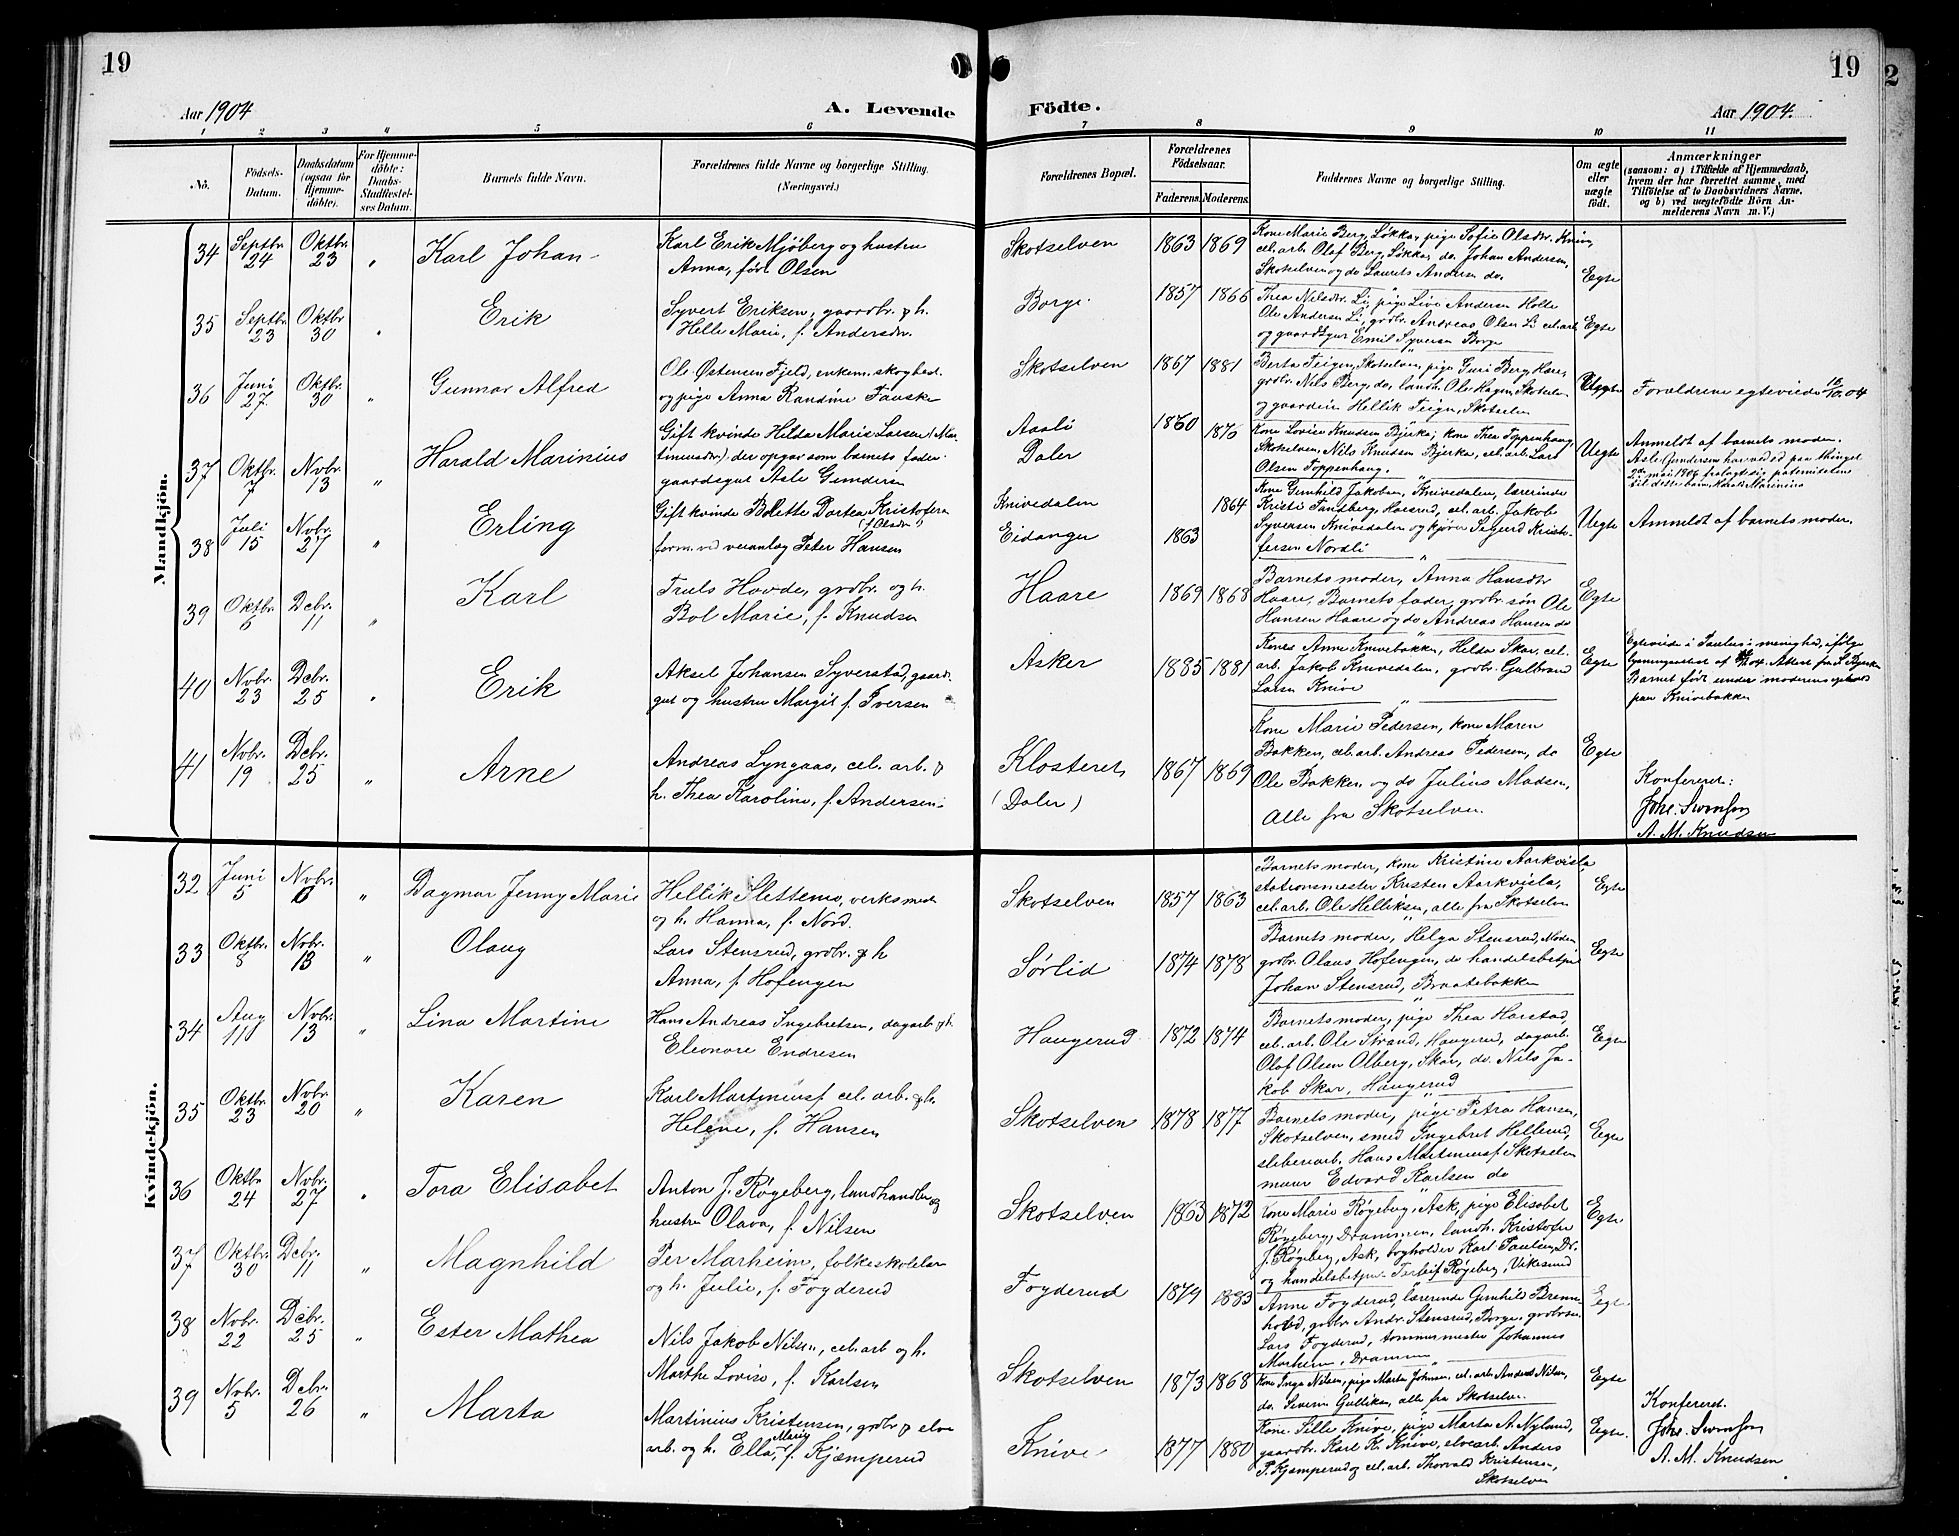 19
19
2
Aar 1904
A. Levende
Födte.
Aar 1904.
1 2 3 4 5 6 7 8 9 10 11
No.
Födsels-
Datum.
Daabsdatum
(ogsaa for
Hjemme-
döbte).
For Hjemme-
döbte:
Daabs-
Stadfæstel-
ses Datum.
Barnets fulde Navn.
Forældrenes fulde Navne og borgerlige Stilling.
(Næringsvei.)
Forældrenes Bopæl.
Forældrenes
Födselsaar.
Faderens. Moderens.
Faddernes Navne og borgerlige Stilling.
Om ægte
eller
uægte
født.
Anmærkninger
(saasom: a) i Tilfælde af Hjemmedaab,
hvem der har forrettet samme, med
Tilføielse af to Daabsvidners Navne,
og b) ved uægtefödte Börn An-
melderens Navn m. V.)
Mandkjön.
34 Septbr. 24 Oktbr. 23 " Karl Johan
Karl Erik Mjöberg og hustru
Anna, født Olsen
Skotselven 1863 1869
Kone Marie Berg, Løkka, pige Sofie Olsdr. Knive,
cel. arb. Olaf Berg, Løkka, do. Johan Andersen,
Skotselven og do Laurits Andersen do.
Egte
35 Septbr. 23 Oktbr 30 " Erik
Syvert Eriksen, gaardbr. & h.
Helle Marie, f. Andersdr.
Borge. 1857 1866
Thea Nilsdr. Li, pige Live Andersen Holte
Ole Andersen Li, grdbr. Andreas Olsen Li cel. arb.
og gaardsgut Emil Syversen Borge
Egte
36 Juni 27. Oktbr. 30 " Gunnar Alfred
Ole Østensen Fjeld, enkem. skogbest.
og pige Anna Randine Fauske
Skotselven 1867 1881
Berta Teigen, Skotselven, pige Guri Berg, Hare,
grdbr. Nils Berg, do, landh. Ole Hagen, Skotselven
og gaardeier Hellik Teigen, Skotselven
Uegte Forældrene egteviede 15/10. 04
37 Oktbr. 7 Novbr. 13 " Harald Marinius
Gift kvinde Hilda Marie Larsen (Mar-
tinusdr.) der opgav som barnets fader
gaardsgut Asle Gundersen
Aasli
Daler
1860 1876
Kone Lovise Knudsen Bjerke, kone Thea Toppenhaug,
Skotselven, Nils Knudsen Bjerke, cel. arb. Lars
Olsen Toppenhaug.
Uegte
Anmeldt af barnets moder.
Asle Gundersen har ved ed paa thinget
2den mai 1906 fralagt sig paterniteten
til dette barn, Harald Marinius
38 Juli 15 Novbr. 27 " Erling
Gift kvinde Bolette Dortea Kristofersen
(f. Olsdr.)
form. ved veianlæg Peter Hansen
Knivedalen
Eidanger
1863 1864
Kone Gunhild Jakobsen, Knivedalen, lærerinde
Kristi Sandberg, Harsrud, cel. arb. Jakob
Syversen Knivedalen og kjører Sigurd Kristo-
fersen Nordli
Uegte Anmeldt af barnets moder.
39 Oktbr. 6 Dcbr. 11 " Karl
Truls Hovde, grdbr. og h.
Bol Marie, f. Knudsen
Haare 1869 1868
Barnets moder, Anna Hansdtr
Haare, Barnets fader, grdbr. søn Ole
Hansen Haare og do Andreas Hansen do
Egte
40 Novbr. 23 Dcbr. 25 " Erik
Aksel Johansen Syverstad, gaards-
gut og hustru Margit f. Iversen
Asker 1885 1881
Kones Anne Knivebakken, Hilda Skar, cel.
arb. Jakob Knivedalen, grdbr. Gulbrand
Larsen Knive
Egte
Egteviede i Paulus menighed, ifølge
Barnet født under moderens ophold
paa Knivebakken
41 Novbr. 19 Dcbr. 25 " Arne
Andreas Lyngaas, cel. arb. &
h. Thea Karoline, f. Andersen
Klosteret
(Daler)
1867 1869
Kone Marie Pedersen, kone Maren
Bakken, cel. arb. Andreas Pedersen, do
Ole Bakken og do Julius Madsen,
Alle fra Skotselven.
Egte
Konfereret:
Johs. Svensen
A. M. Knudsen
Kvindekjön.
32 Juni 5 Novbr. 6 " Dagmar Jenny Marie
Hellik Slettemo, verksmed
og h. Hanna, f. Nord.
Skotselven 1857 1863
Barnets moder, kone Kristine Aarkvisla,
stationsmester Kristen Aarkvisla,
cel. arb. Ole Helliksen, alle fra Skotselven
Egte
33 Oktbr. 8 Novbr. 13 " Olaug
Lars Stensrud, grdbr. & h
Anna, f. Hofengen
Sørlid 1874 1878
Barnets moder, Helga Stensrud, Moden
grdbr. Olaus Hofengen, do handelsbetjent
Johan Stensrud, Braatebakken
Egte
34 Aug 11 Novbr. 13 " Lina Martine
Hans Andreas Ingebretsen, dagarb. & h.
Eleonore Endresen
Haugerud 1872 1874
Barnets moder, pige Thea Harstad,
cel. arb. Ole Strand, Haugerud, dagarb.
Olof Olsen Olberg, Skar, do. Nils Ja-
kob Skar, Haugerud
Egte
35 Oktbr. 23 Novbr. 20 " Karen
Karl Martiniusf cel. arb. & h.
Helene, f. Hansen
Skotselven 1878 1877
Barnets moder, pige Petra Hansen,
Skotselven, smed Ingebret Hellerud,
sliberiarb. Hans Martiniusf Skotselven
murer Edvard Karlsen do
Egte
36 Oktbr 24 Novbr. 27 " Tora Elisabet
Anton J. Røgeberg, landhandler og
hustru Olava, f. Nilsen
Skotselven 1863 1872
Kone Marie Røgeberg, Ask, pige Elisabet
Røgeberg, Drammen, landh. Kristofer
J. Røgeberg, Ask, bogholder Karl Paulsen, Dr.
og handelsbetjent Terkif Røgeberg, Vikesund
Egte
37 Oktbr. 30 Dcbr. 11 " Magnhild
Per Marheim, folkeskolelær
og h. Julie, f. Fogderud
Fogderud 1879 1883
Anne Fogderud, lærerinde Gunhild Brenne-
hoved, grdbr. Andr. Stensrud, Borge, grdbrsøn
Lars Fogderud, tømmermester Johannes
Marheim, Drammen
Egte
38 Novbr. 22 Dcbr. 25 " Ester Mathea
Nils Jakob Nilsen, cel. arb og h.
Marthe Lovise, f. Karlsen
Skotselven 1873 1868
Kone Inga Nilsen, pige Marta Johnsen, cel. arb. Anders Nilsen,
do. Severin Gulliksen, alle fra Skotselven
Egte
39 Novbr. 5 Dcbr. 26 " Marta
Martinius Kristensen, grdbr & elve
arb. og h. Ella Marie, f. Kjæmperud
Knive 1877 1880
Kone Sille Knive, pige Marta A. Nyland,
gaardbr. Karl K. Knive, elvearb. Anders
P. Kjæmperud og cel. arb. Thorvald Kristensen,
Skotselven
Egte.
Konfereret.
Johs. Svensen
A. M. Knudsen